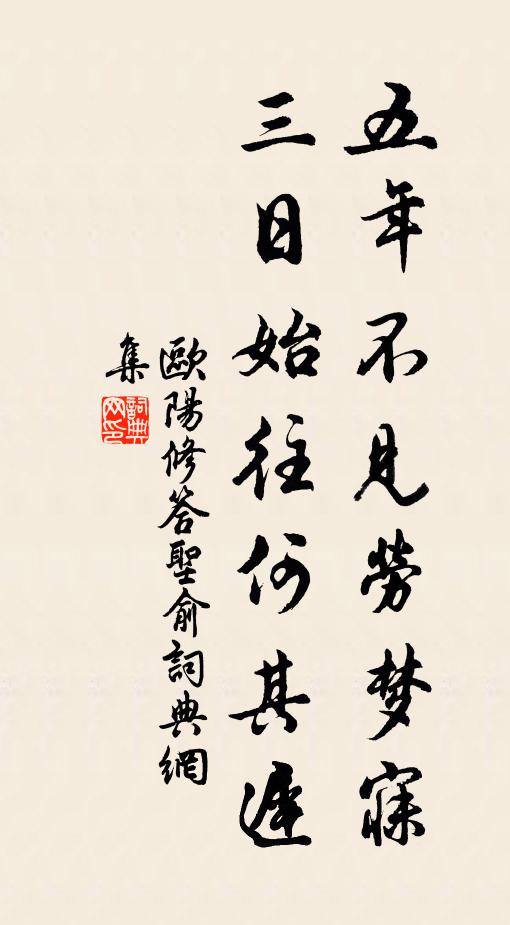 五年不見勞梦寐
三日始往何其遲
歐陽修答聖俞詞典網
集
詞典网印